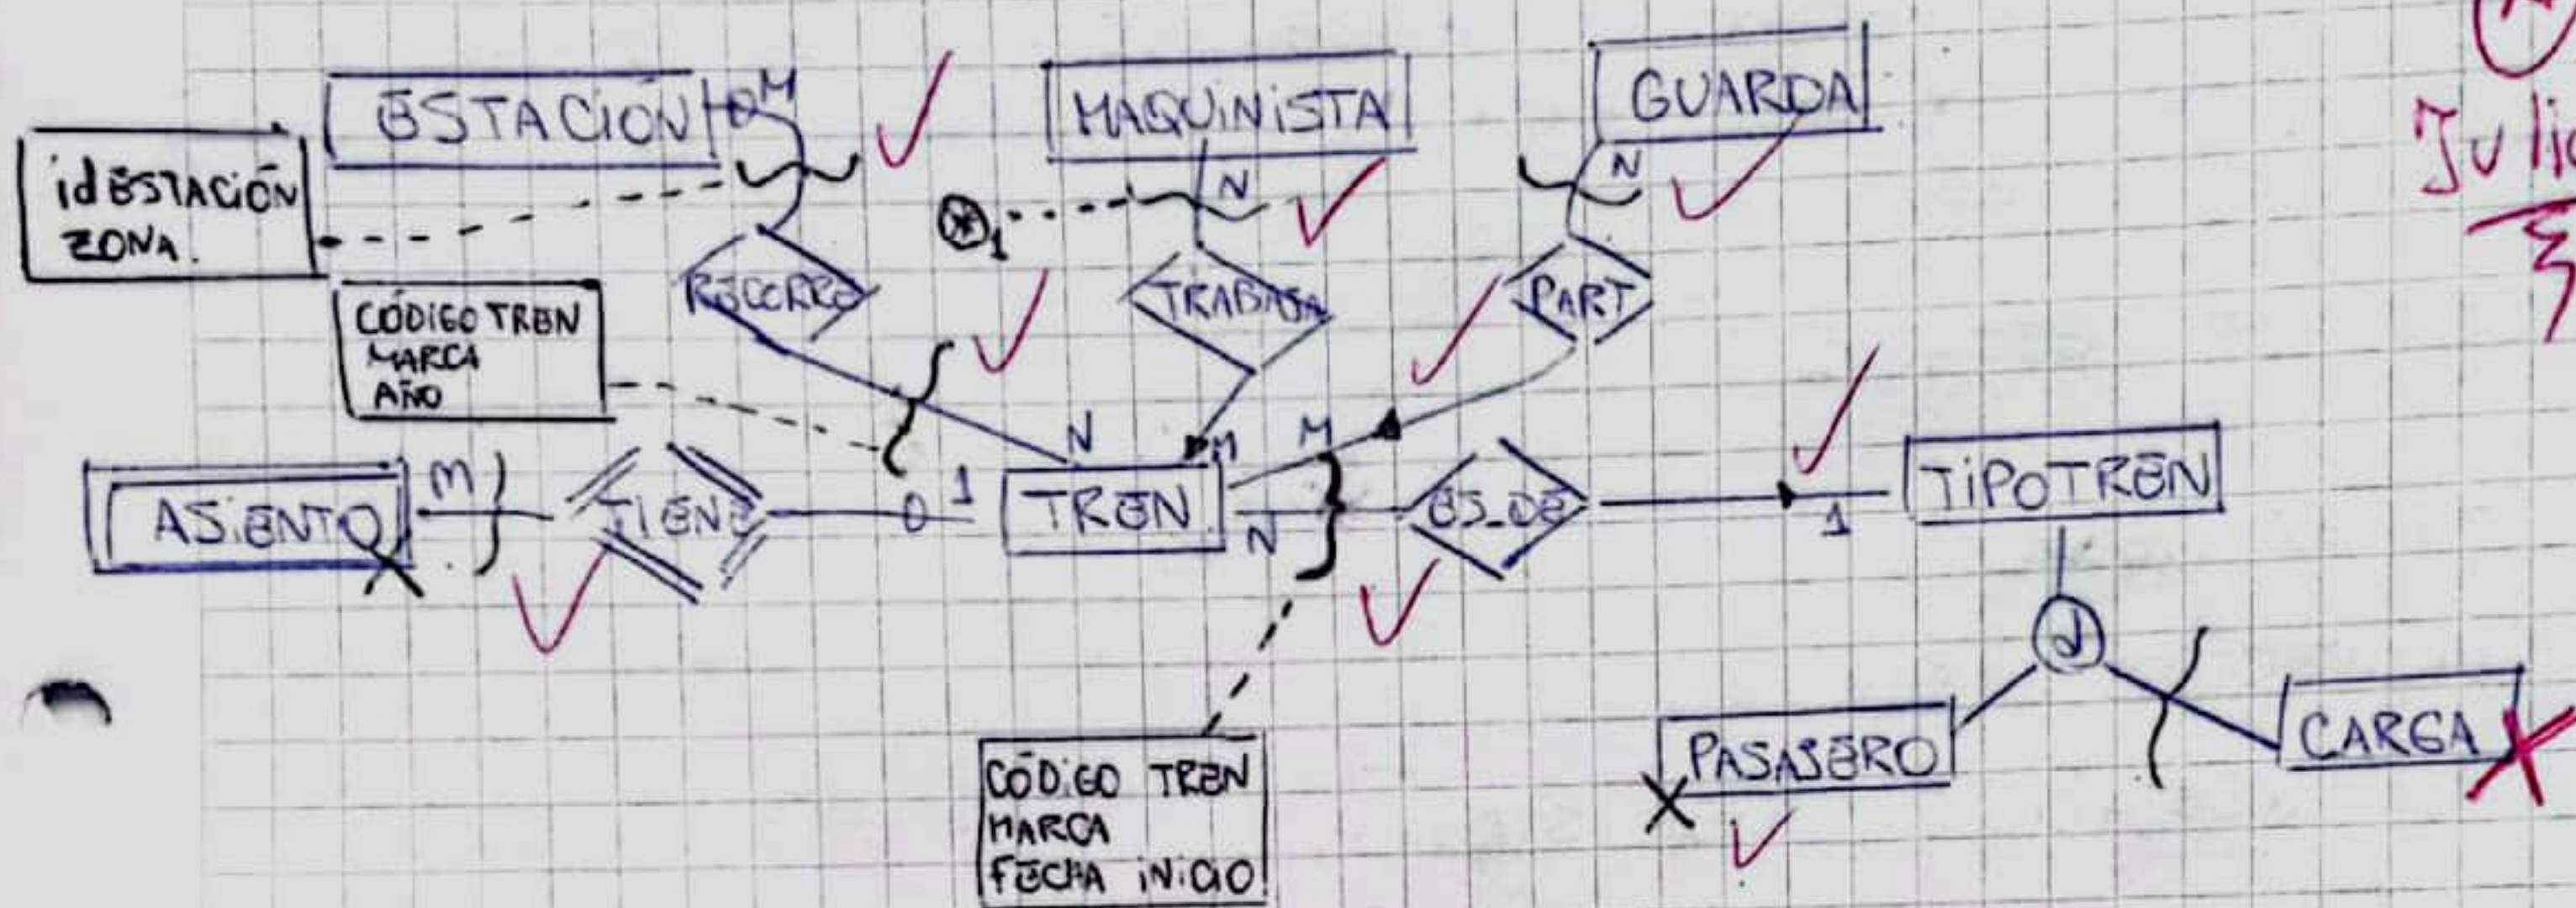 ESTACIÓN
M
MAQUINISTA
GUARDA
idESTACIÓN
ZONA.
N
N
*1
RECORRE
TRABAJA
PART
CÓDIGO TREN
MARCA
AÑO
N
M
M
ASIENTO
M
TIENE
1
TREN
N
ES_DE
1
TIPOTREN
d
PASAJERO
CARGA
CÓDIGO TREN
MARCA
FECHA INICIO